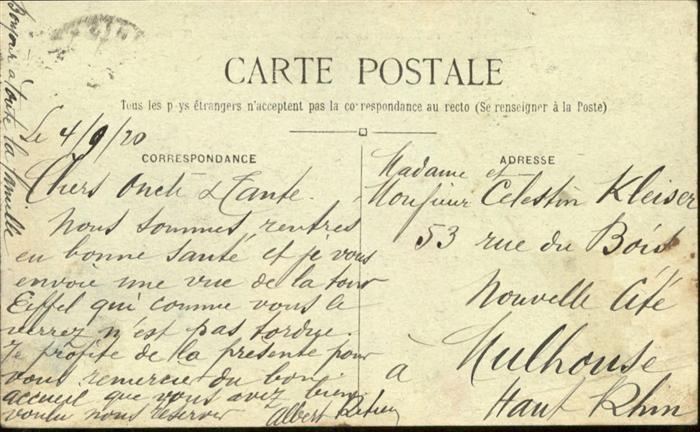 CARTE POSTALE
Tous les pays étrangers n'acceptent pas la correspondance au recto (Se renseigner à la Poste)
CORRESPONDANCE
Le 4/9/20
Chers Oncle & Tante.
Nous sommes rentres
en bonne santé et je vous
envoie une vue de la tour
Eiffel qui comme vous le
verrez n'est pas tordue.
Je profite de la presente pour
vous remercier du bon
accueil que vous avez bien
voulu nous réserver
Albert
Bonjour à toute la famille
ADRESSE
Madame et
Monsieur Célestin Kleiser
53 rue du Bois
Nouvelle Cité
à Mulhouse
Haut Rhin